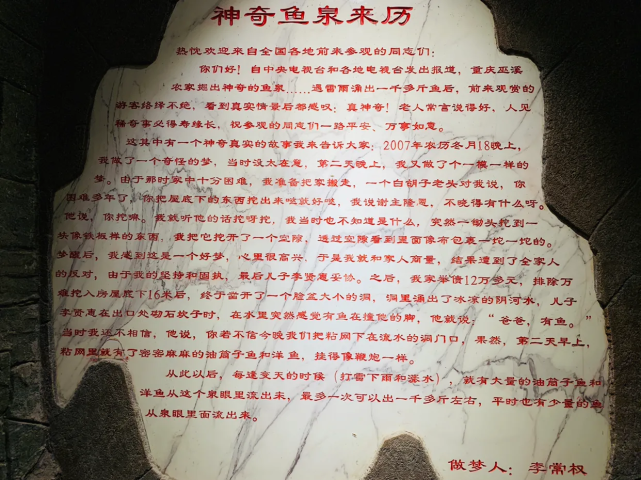 神奇鱼泉来历
热忱欢迎来自全国各地前来参观的同志们：
你们好！自中央电视台和各地电视台发出报道，重庆巫溪
农家挖出神奇的鱼泉……遇雷雨涌出一千多斤鱼后，前来观赏的
游客络绎不绝，看到真实情景后都感叹：真神奇！老人常言说得好，人见
稀奇事必得寿缘长，祝参观的同志们一路平安、万事如意。
这其中有一个神奇真实的故事我来告诉大家：2007年农历冬月18晚上，
我做了一个奇怪的梦，当时没太在意，第二天晚上，我又做了个一模一样的
梦。由于那时家中十分困难，我准备把家搬走，一个白胡子老头对我说，你
困难多年了，你把屋底下的东西挖出来哒就好哒，我说谢主隆恩，不晓得有什么呀。
他说，你挖嘛。我就听他的话挖呀挖，我当时也不知道是什么，突然一锄头挖到一
块像铁板样的东西，我把它挖开了一个空隙，透过空隙看到里面像布包裹一坨一坨的。
梦醒后，我感到这是一个好梦，心里很高兴，于是我就和家人商量，结果遭到了全家人
的反对，由于我的坚持和固执，最后儿子李贤惠妥协。之后，我家举债12万多元，排除万
难挖入房屋底下16米后，终于凿开了一个脸盆大小的洞，洞里涌出了冰凉的阴河水，儿子
李贤惠在出口处砌石坎子时，在水里突然感觉有鱼在撞他的脚，他就说，“爸爸，有鱼。”
当时我还不相信，他说，你若不信今晚我们把粘网下在流水的洞门口，果然，第二天早上，
粘网里就有了密密麻麻的油筒子鱼和洋鱼，挂得像鞭炮一样。
从此以后，每逢变天的时候（打雷下雨和涨水），就有大量的油筒子鱼和
洋鱼从这个泉眼里流出来，最多一次可以出一千多斤左右，平时也有少量的鱼
从泉眼里面流出来。
做梦人：李常权